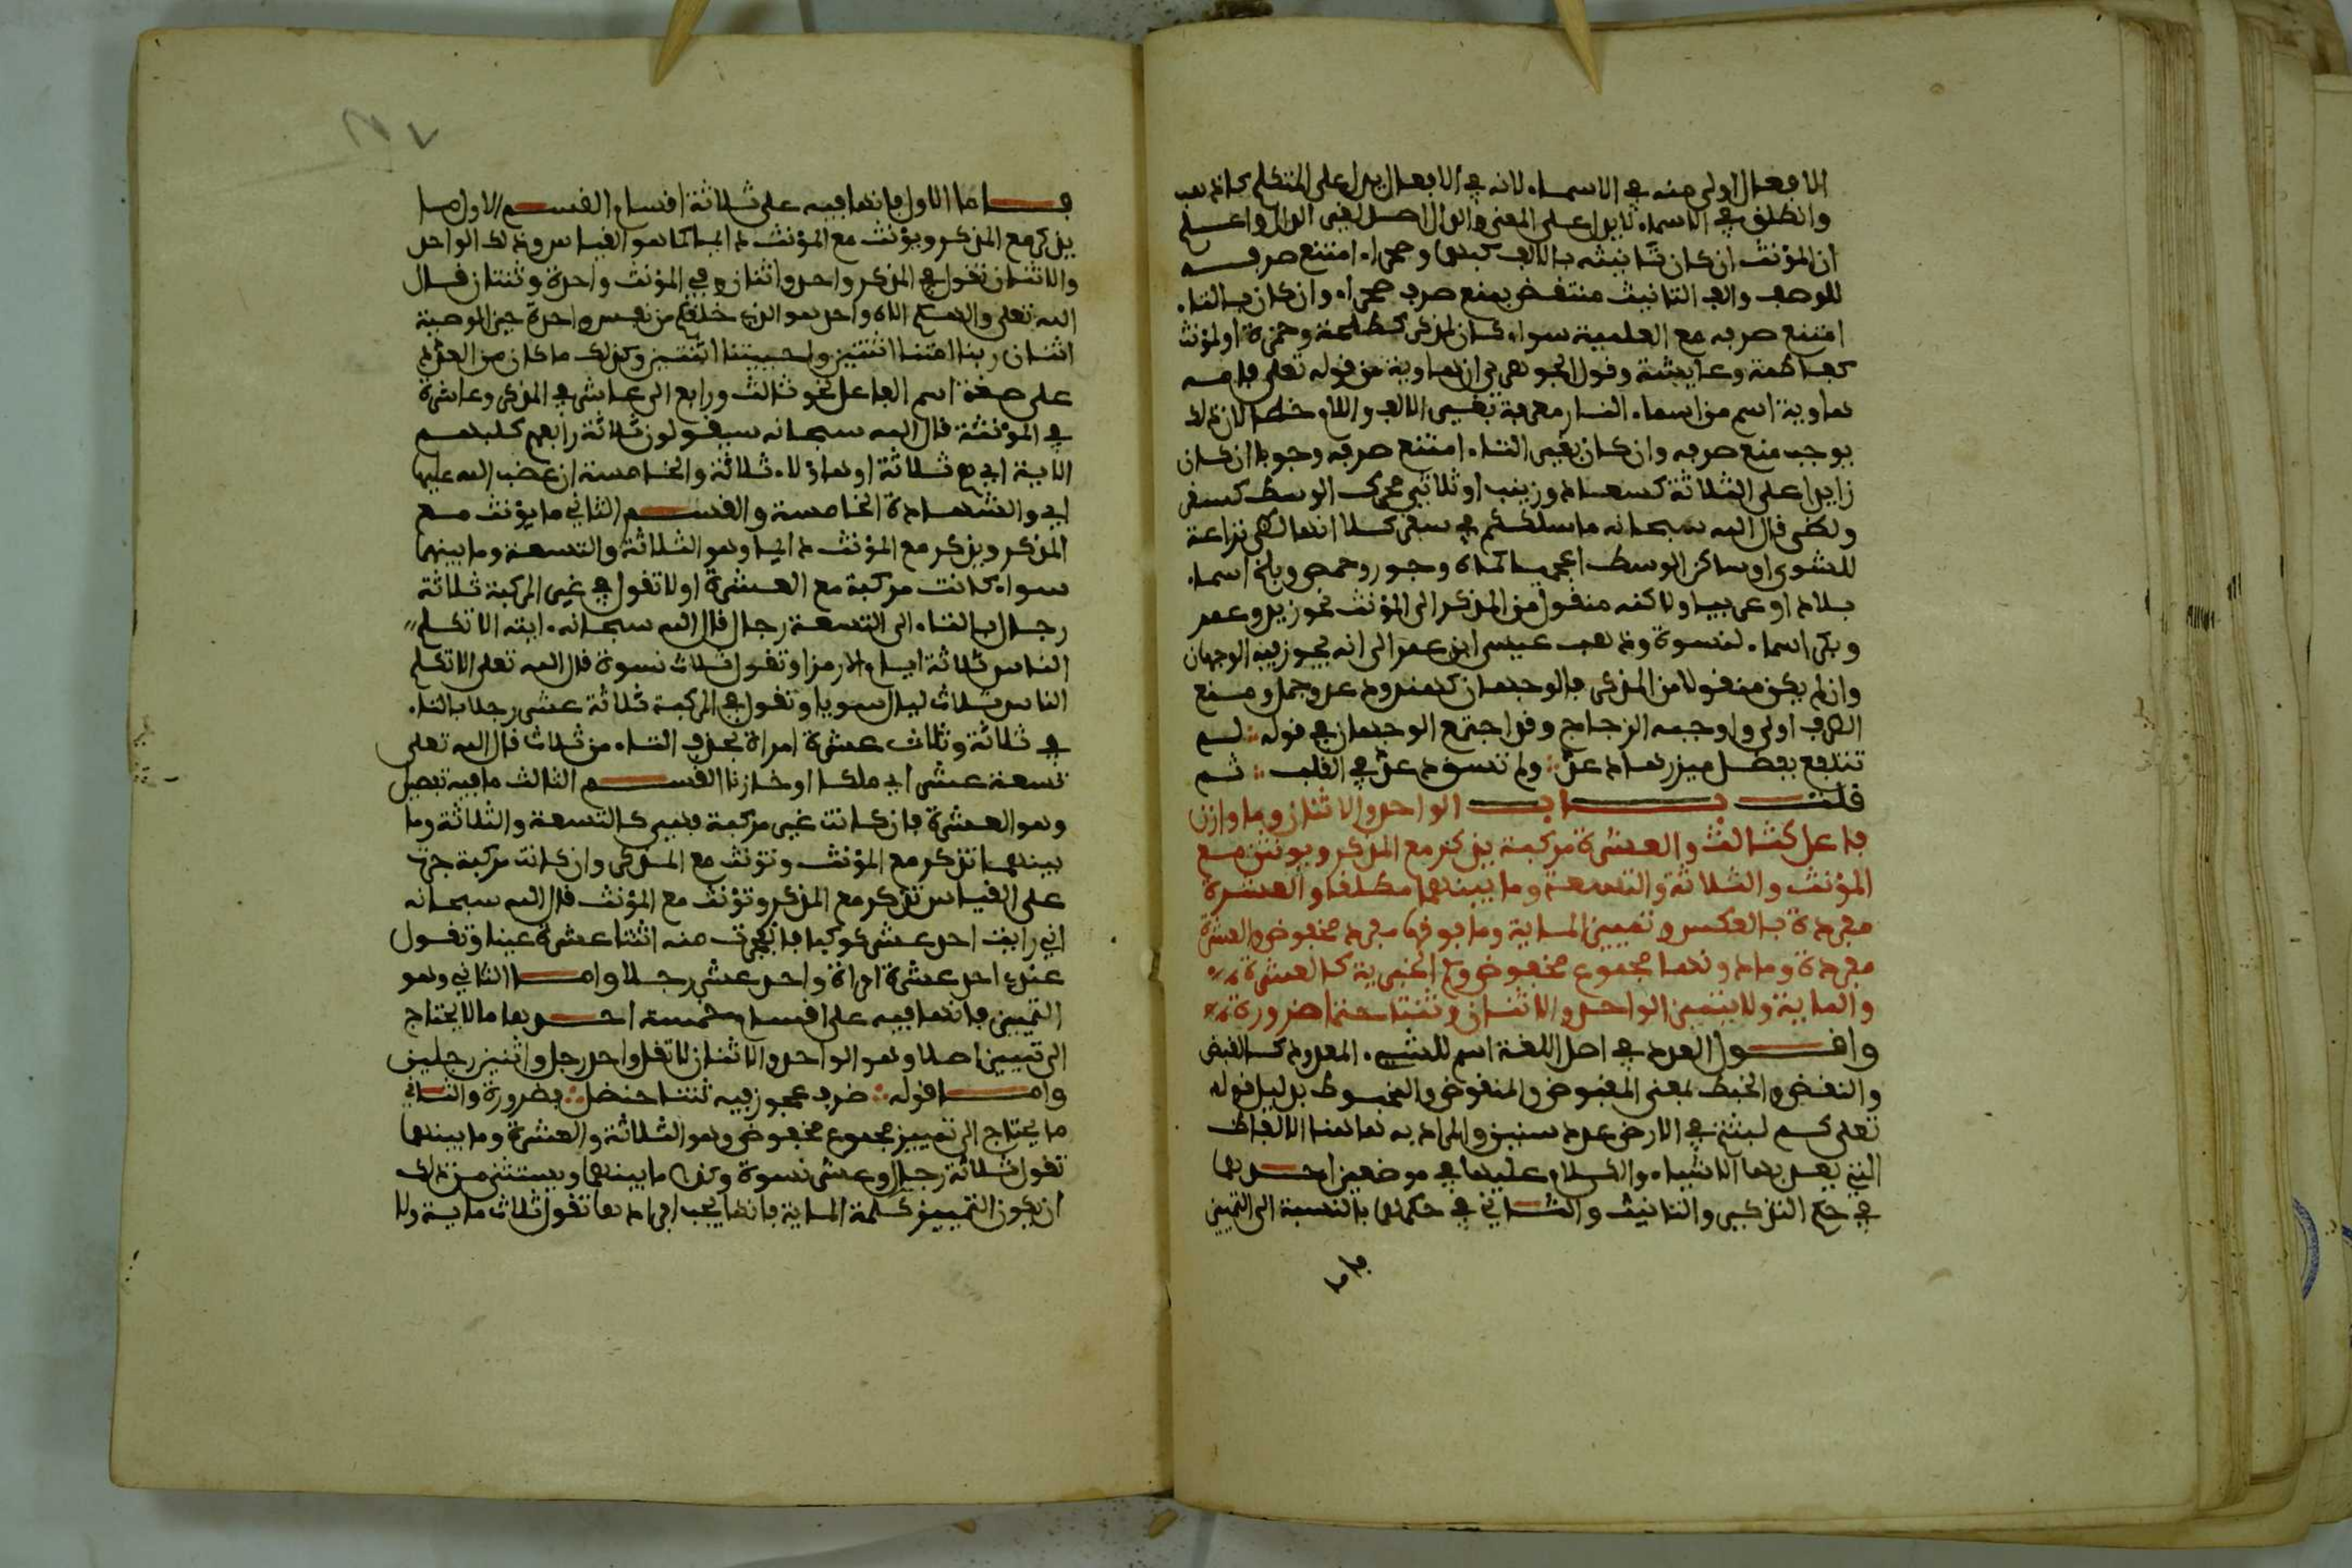 الافعال اولى منه في الاسماء لانه في الافعال يدل على المتكلم كاذهب
وانطلق في الاسماء لا يدل على المعنى والدال اصل لغير الدال واعلم
ان المؤنث ان كان تانيثه بالالف كبهمى وصحراء امتنع صرفه
للوصف والف التانيث منتقض بمنع صرف صحراء وان كان بالتاء
امتنع صرفه مع العلمية سواء كان لمذكر كطلحة وحمزة او لمؤنث
كفاطمة وعايشة وقول الجوهري ان هاوية من قوله تعلى فامه
هاوية اسم من اسماء النار معرفة بغير الالف واللام خطا لان ذلك
يوجب منع صرفه وان كان بغير التاء امتنع صرفه وجوبا ان كان
زايدا على الثلاثة كسعاد وزينب او ثلاثي محرك الوسط كسقر
ولظى قال الله سبحانه ما سلككم في سقر كلا انها لظى نزاعة
للشوى او ساكن الوسط اعجميا كماه وجور وحمص وبلخ اسماء
بلاد او عربيا ولاكنه منقول من المذكر الى المؤنث نحو زيد وعمر
وبكر اسماء لنسوة وذهب عيسى ابن عمر الى انه يجوز فيه الوجهان
وان لم يكن منقولا من المذكر فالوجهان كهند ودعد وجمل ومنع
الصرف اولى واوجبه الزجاج وقد اجتمع الوجهان في قوله لم
تتلفع بفضل ميزرها دعد ولم تسق دعد في العلب ثم
قلت باب الواحد والاثنان وما وازن
فاعل كثالث والعشرة مركبة يذكر مع المذكر ويونثن مع
المؤنث والثلاثة والتسعة وما بينهما مطلقا والعشرة
مفردة بالعكس وتمييز الماية وما فوقها مفرد مخفوض والعشرة
مفردة وما دونها مجموع مخفوض وكم الخبرية كالعشرة
والماية ولا يتميز الواحد والاثنان وثنتا حنظل ضرورة
واقول العدد في اصل اللغة اسم للشيء المعدود كالقبض
والنقض والخبط بمعنى المقبوض والمنقوض والمخبوط بدليل قوله
تعلى كم لبثتم في الارض عدد سنين والمراد به هاهنا الالفاظ
التي يعد بها الاشياء والكلام عليها في موضعين احدهما
في حكم التذكير والتانيث والثاني في حكمها بالنسبة الى التمييز
فاما
فاما الاول فانها فيه على ثلاثة اقسام القسم الاول ما
يذكر مع المذكر ويؤنث مع المؤنث دايما كما هو القياس وذلك الواحد
والاثنان تقول في المذكر واحد واثنان وفي المؤنث واحدة وثنتان قال
الله تعلى والهكم الاه واحد هو الذي خلقكم من نفس واحدة حين الوصية
اثنان ربنا امتنا اثنتين واحييتنا اثنتين وكذلك ما كان من العدد
على صيغة اسم الفاعل نحو ثالث ورابع الى عاشر في المذكر وعاشرة
في المؤنثة قال الله سبحانه سيقولون ثلاثة رابعهم كلبهم
الاية اي هم ثلاثة او هاؤلاء ثلاثة والخامسة ان غضب الله عليها
اي والشهادة الخامسة والقسم الثاني ما يؤنث مع
المذكر ويذكر مع المؤنث دايما وهو الثلاثة والتسعة وما بينهما
سواء كانت مركبة مع العشرة او لا تقول في غير المركبة ثلاثة
رجال بالتاء الى التسعة رجال قال الله سبحانه ايته الا تكلم
الناس ثلاثة ايام الا رمزا وتقول ثلاث نسوة قال الله تعلى الا تكلم
الناس ثلاث ليال سويا وتقول في المركبة ثلاثة عشر رجلا بالتاء
في ثلاثة وثلاث عشرة امراة بحذف التاء من ثلاث قال الله تعلى
تسعة عشر اي ملكا او خازنا القسم الثالث ما فيه تفصيل
وهو العشرة فان كانت غير مركبة فهي كالتسعة والثلاثة وما
بينهما تذكر مع المؤنث وتؤنث مع المذكر وان كانت مركبة جرت
على القياس تذكر مع المذكر وتؤنث مع المؤنث قال الله سبحانه
اني رايت احد عشر كوكبا فانفجرت منه اثنتا عشرة عينا وتقول
عندي احد عشرة امراة واحد عشر رجلا واما الثاني وهو
التمييز فانها فيه على اقسام خمسة احدها ما لا يحتاج
الى تمييز اصلا وهو الواحد والاثنان لا تقل واحد رجل واثنين رجلين
واما قوله ظرف عجوز فيه ثنتا حنظل فضرورة والثاني
ما يحتاج الى تمييز مجموع مخفوض وهو الثلاثة والعشرة وما بينهما
تقول ثلاثة رجال وعشر نسوة وكذا ما بينهما ويستثنى من ذلك
ان يكون التمييز كلمة الماية فانها يجب افرادها تقول ثلاث ماية ولا